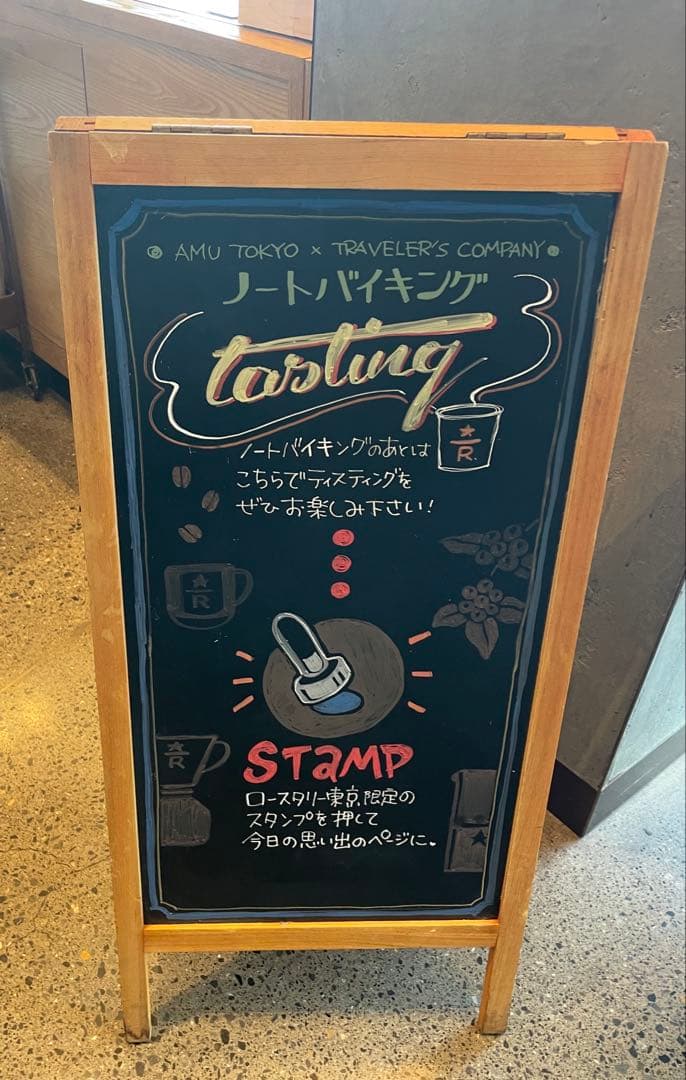 AMU TOKYO × TRAVELER'S COMPANY
ノートバイキング
tasting
ノートバイキングのあとは
こちらでティスティングを
ぜひお楽しみ下さい!
★
R
★
R
STAMP
★
R
ロースタリー東京限定の
スタンプを押して
今日の思い出のページに♥